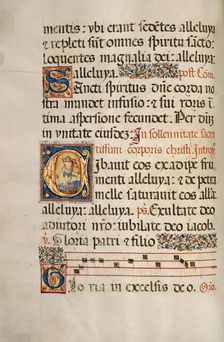 mentis: ubi erant sedētes alleluya
et repleti sūt omnes spiritu sācto:
loquentes magnalia dei: alleluya
alleluya. post Com̄
Sancti spiritus dn̄e corda no
stra mundet infusio: & sui roris ī
tima aspersione fecundet. Per dn̄m
in unitate eiusdē: In sollennitate sacra
tissimi corporis christi. Introit9
Cibauit eos ex adipe frumenti
alleluya: & de petra
melle saturauit eos alleluya
alleluya: alleluya. ps. Exultate deo
adiutori nr̄o: iubilate deo iacob.
Gloria patri & filio
Gloria in excelsis de o.